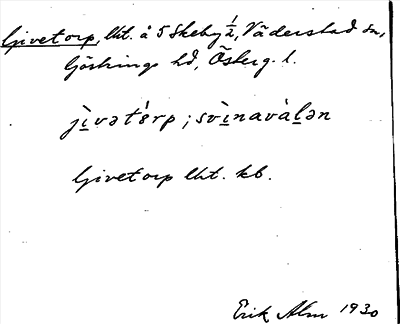 Givetorp, lht. å S Skeby ½, Väderstad sn,
Göstrings hd, Österg. l.
jìvətərp ; svìnavàlən
Givetorp lht. kb.
Erik Alm 1930